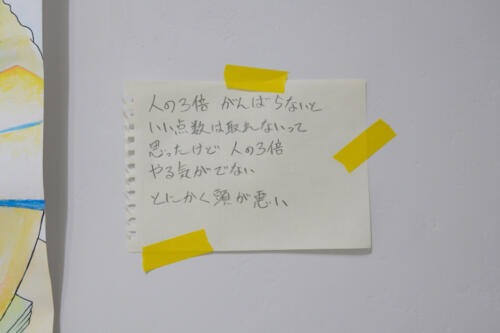 人の3倍 がんばらないと
いい点数は取れないって
思ったけど 人の3倍
やる気がでない
とにかく頭が悪い